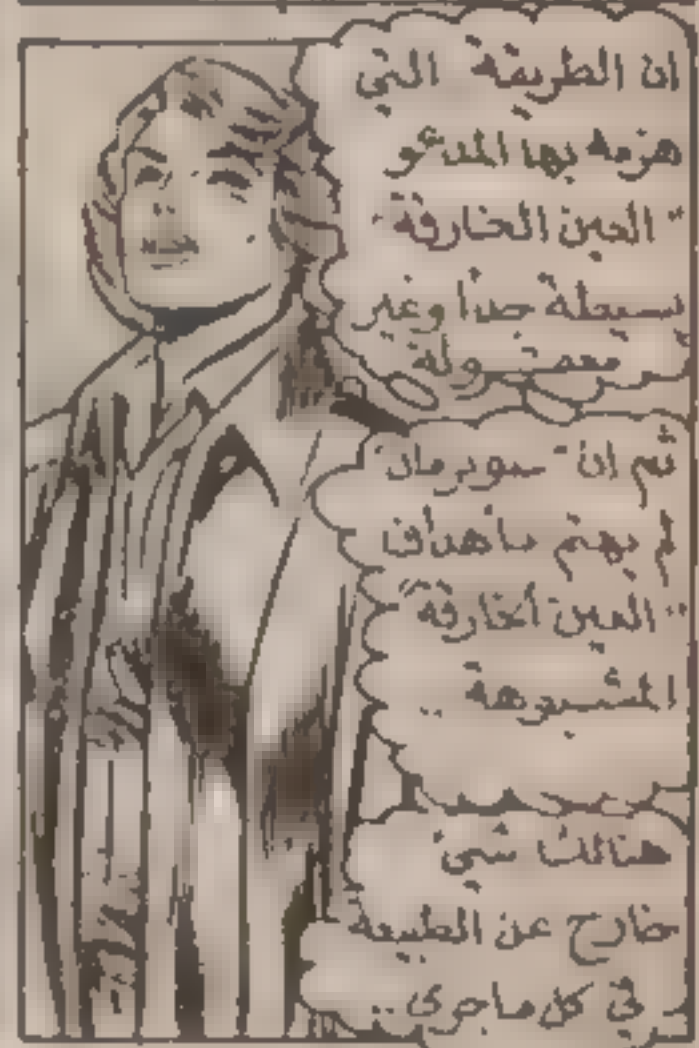 ان الطريقة التي
هزمه بها المدعو
"العين الخارقة"
بسيطة جدا وغير
معقولة
ثم ان "سوبرمان"
لم يهتم بأهداف
"العين الخارقة"
المشبوهة ..
هنالك شيئ
خارج عن الطبيعة
في كل ما جرى ..